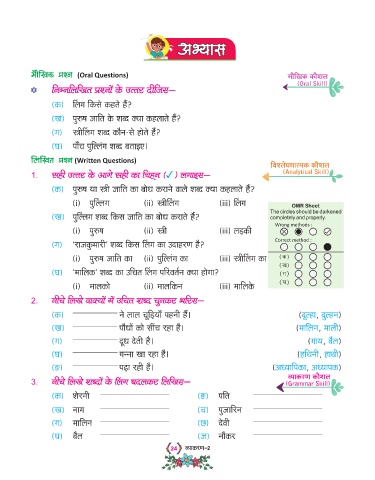 अभ्यास
मौखिक प्रश्न (Oral Questions)
मौखिक कौशल
(Oral Skill)
निम्नलिखित प्रश्नों के उत्तर दीजिए—
(क) लिंग किसे कहते हैं?
(ख) पुरुष जाति के शब्द क्या कहलाते हैं?
(ग) स्त्रीलिंग शब्द कौन-से होते हैं?
(घ) पाँच पुल्लिंग शब्द बताइए।
लिखित प्रश्न (Written Questions)
विश्लेषणात्मक कौशल
(Analytical Skill)
1. सही उत्तर के आगे सही का चिह्न (✓) लगाइए—
(क) पुरुष या स्त्री जाति का बोध कराने वाले शब्द क्या कहलाते हैं?
(i) पुल्लिंग (ii) स्त्रीलिंग (iii) लिंग
(ख) पुल्लिंग शब्द किस जाति का बोध कराते हैं?
(i) पुरुष (ii) स्त्री (iii) लड़की
(ग) 'राजकुमारी' शब्द किस लिंग का उदाहरण है?
(i) पुरुष जाति का (ii) पुल्लिंग का (iii) स्त्रीलिंग का
(घ) 'मालिक' शब्द का उचित लिंग परिवर्तन क्या होगा?
(i) मालको (ii) मालकिन (iii) मालिके
OMR Sheet
The circles should be darkened
completely and properly.
Wrong methods :
Correct method :
(क)
(ख)
(ग)
(घ)
2. नीचे लिखे वाक्यों में उचित शब्द चुनकर भरिए—
(क) ने लाल चूड़ियाँ पहनी हैं। (दूल्हा, दुल्हन)
(ख) पौधों को सींच रहा है। (मालिन, माली)
(ग) दूध देती है। (गाय, बैल)
(घ) गन्ना खा रहा है। (हथिनी, हाथी)
(ङ) पढ़ा रही हैं। (अध्यापिका, अध्यापक)
व्याकरण कौशल
(Grammar Skill)
3. नीचे लिखे शब्दों के लिंग बदलकर लिखिए—
(क) शेरनी (ङ) पति
(ख) नाग (च) पुजारिन
(ग) मालिन (छ) देवी
(घ) बैल (ज) नौकर
24 व्याकरण–2